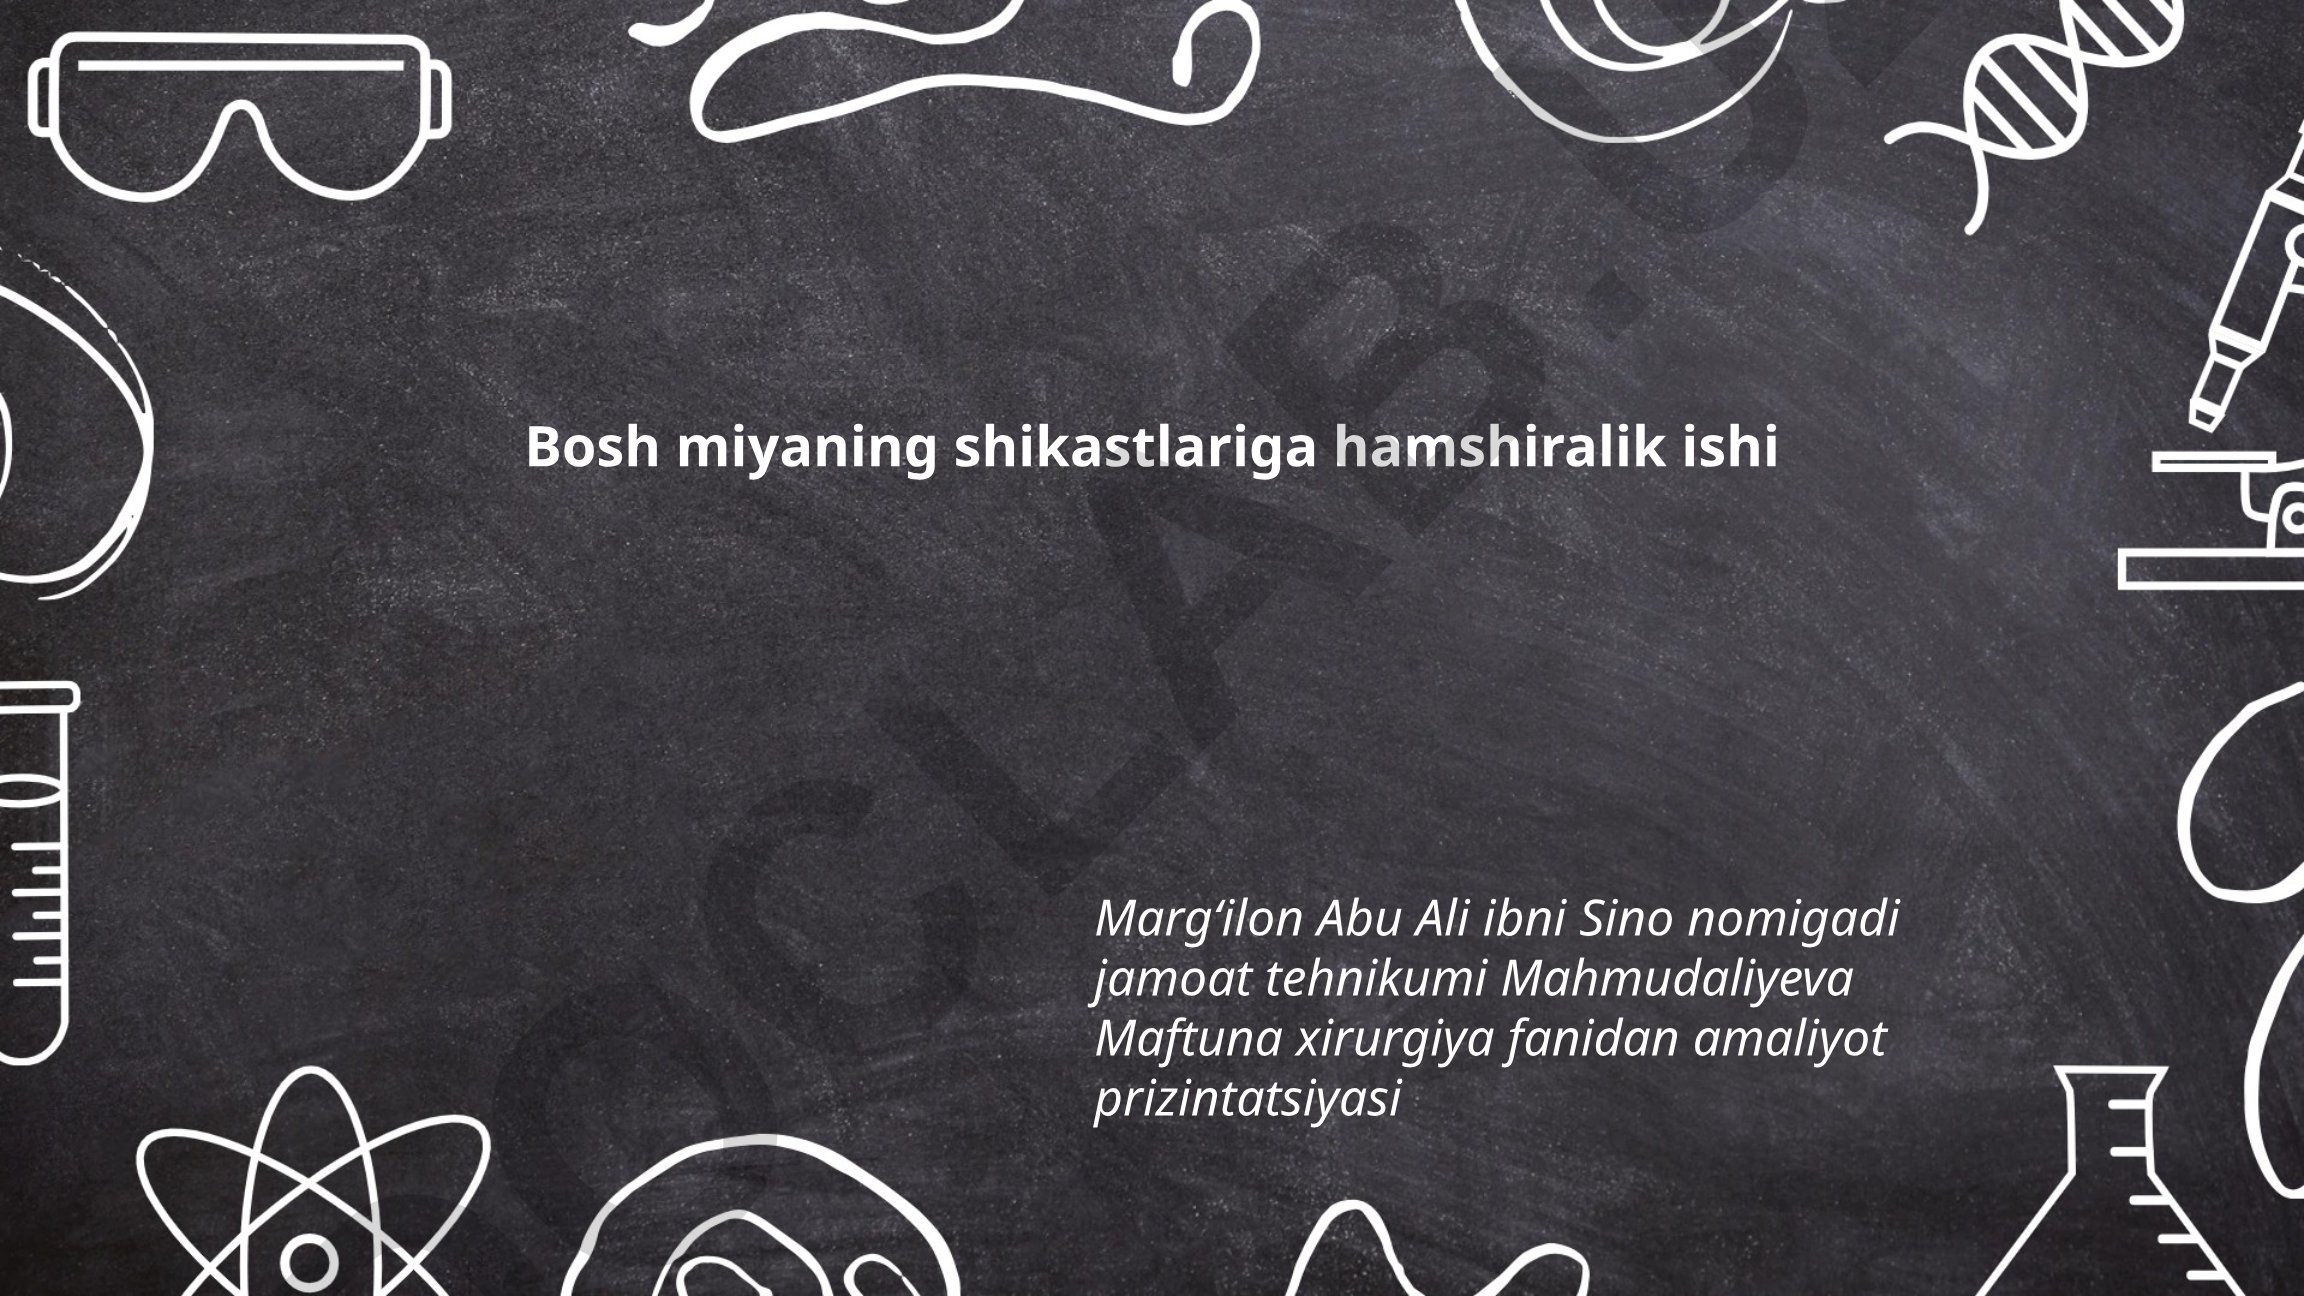 Bosh miyaning shikastlariga hamshiralik ishi
Marg‘ilon Abu Ali ibni Sino nomigadi
jamoat tehnikumi Mahmudaliyeva
Maftuna xirurgiya fanidan amaliyot
prizintatsiyasi